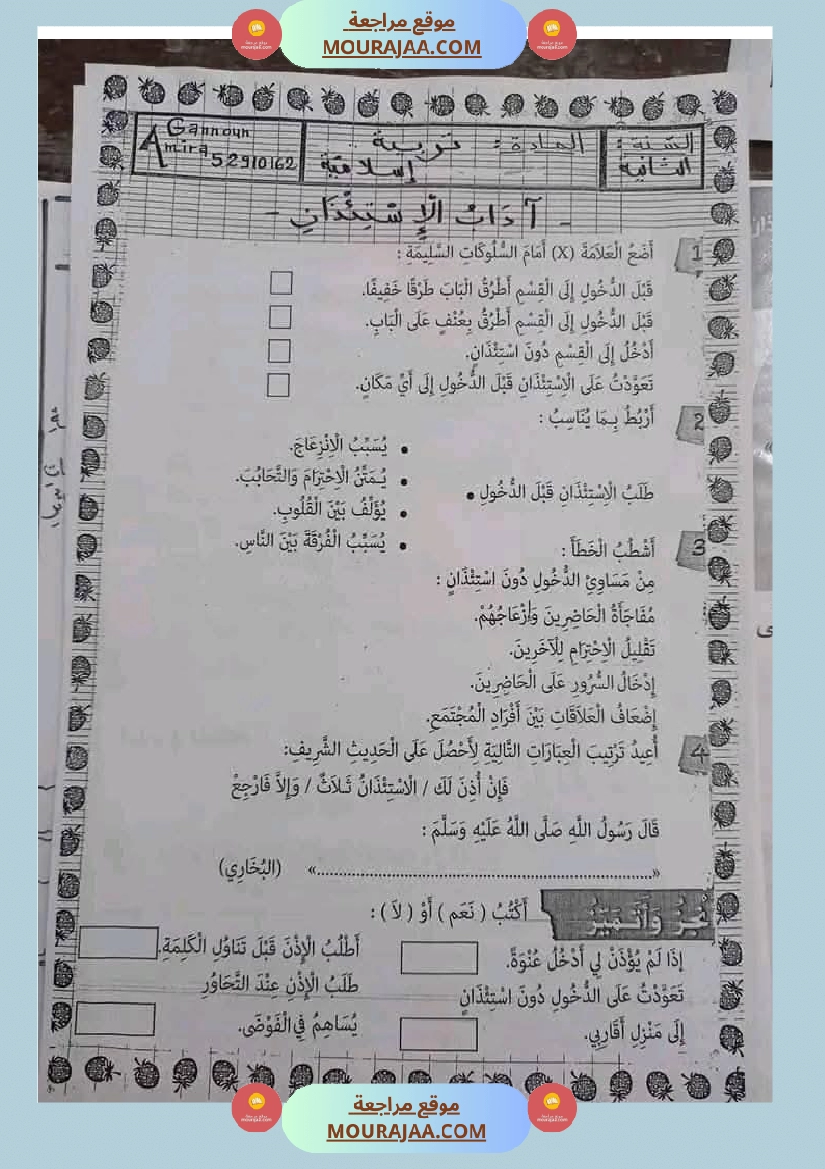 موقع مراجعة
MOURAJAA.COM
السنة: الثانية
المادة: تربية إسلامية
Gannoun Amira 52910162
- آدَابُ الْإِسْتِئْذَانِ -
1 أَضَعُ الْعَلاَمَةَ (X) أَمَامَ السُّلُوكَاتِ السَّلِيمَةِ :
قَبْلَ الدُّخُولِ إِلَى الْقِسْمِ أَطْرُقُ الْبَابَ طَرْقًا خَفِيفًا.
قَبْلَ الدُّخُولِ إِلَى الْقِسْمِ أَطْرُقُ بِعُنْفٍ عَلَى الْبَابِ.
أَدْخُلُ إِلَى الْقِسْمِ دُونَ اسْتِئْذَانٍ.
تَعَوَّدْتُ عَلَى الْاِسْتِئْذَانِ قَبْلَ الدُّخُولِ إِلَى أَيِّ مَكَانٍ.
2 أَرْبُطُ بِمَا يُنَاسِبُ :
طَلَبُ الْاِسْتِئْذَانِ قَبْلَ الدُّخُولِ •
• يُسَبِّبُ الْاِنْزِعَاجَ.
• يُمَتِّنُ الْاِحْتِرَامَ وَالتَّحَابُبَ.
• يُؤَلِّفُ بَيْنَ الْقُلُوبِ.
• يُسَبِّبُ الْفُرْقَةَ بَيْنَ النَّاسِ.
3 أَشْطُبُ الْخَطَأَ :
مِنْ مَسَاوِئِ الدُّخُولِ دُونَ اسْتِئْذَانٍ :
مُفَاجَأَةُ الْحَاضِرِينَ وَإِزْعَاجُهُمْ.
تَقْلِيلُ الْاِحْتِرَامِ لِلْآخَرِينَ.
إِدْخَالُ السُّرُورِ عَلَى الْحَاضِرِينَ.
إِضْعَافُ الْعَلاَقَاتِ بَيْنَ أَفْرَادِ الْمُجْتَمَعِ.
4 أُعِيدُ تَرْتِيبَ الْعِبَارَاتِ التَّالِيَةِ لِأَحْصُلَ عَلَى الْحَدِيثِ الشَّرِيفِ:
فَإِنْ أُذِنَ لَكَ / الْاسْتِئْذَانُ ثَلاَثٌ / وَإِلاَّ فَارْجِعْ
قَالَ رَسُولُ اللَّهِ صَلَّى اللَّهُ عَلَيْهِ وَسَلَّمَ :
«..............................................................» (البُخَارِي)
وَأَتَمَيَّزُ
أَكْتُبُ ( نَعَم ) أَوْ ( لاَ ) :
إِذَا لَمْ يُؤْذَنْ لِي أَدْخُلُ عُنْوَةً.
تَعَوَّدْتُ عَلَى الدُّخُولِ دُونَ اسْتِئْذَانٍ
إِلَى مَنْزِلِ أَقَارِبِي.
أَطْلُبُ الْإِذْنَ قَبْلَ تَنَاوُلِ الْكَلِمَةِ.
طَلَبُ الْإِذْنِ عِنْدَ التَّحَاوُرِ
يُسَاهِمُ فِي الْفَوْضَى.
موقع مراجعة
MOURAJAA.COM